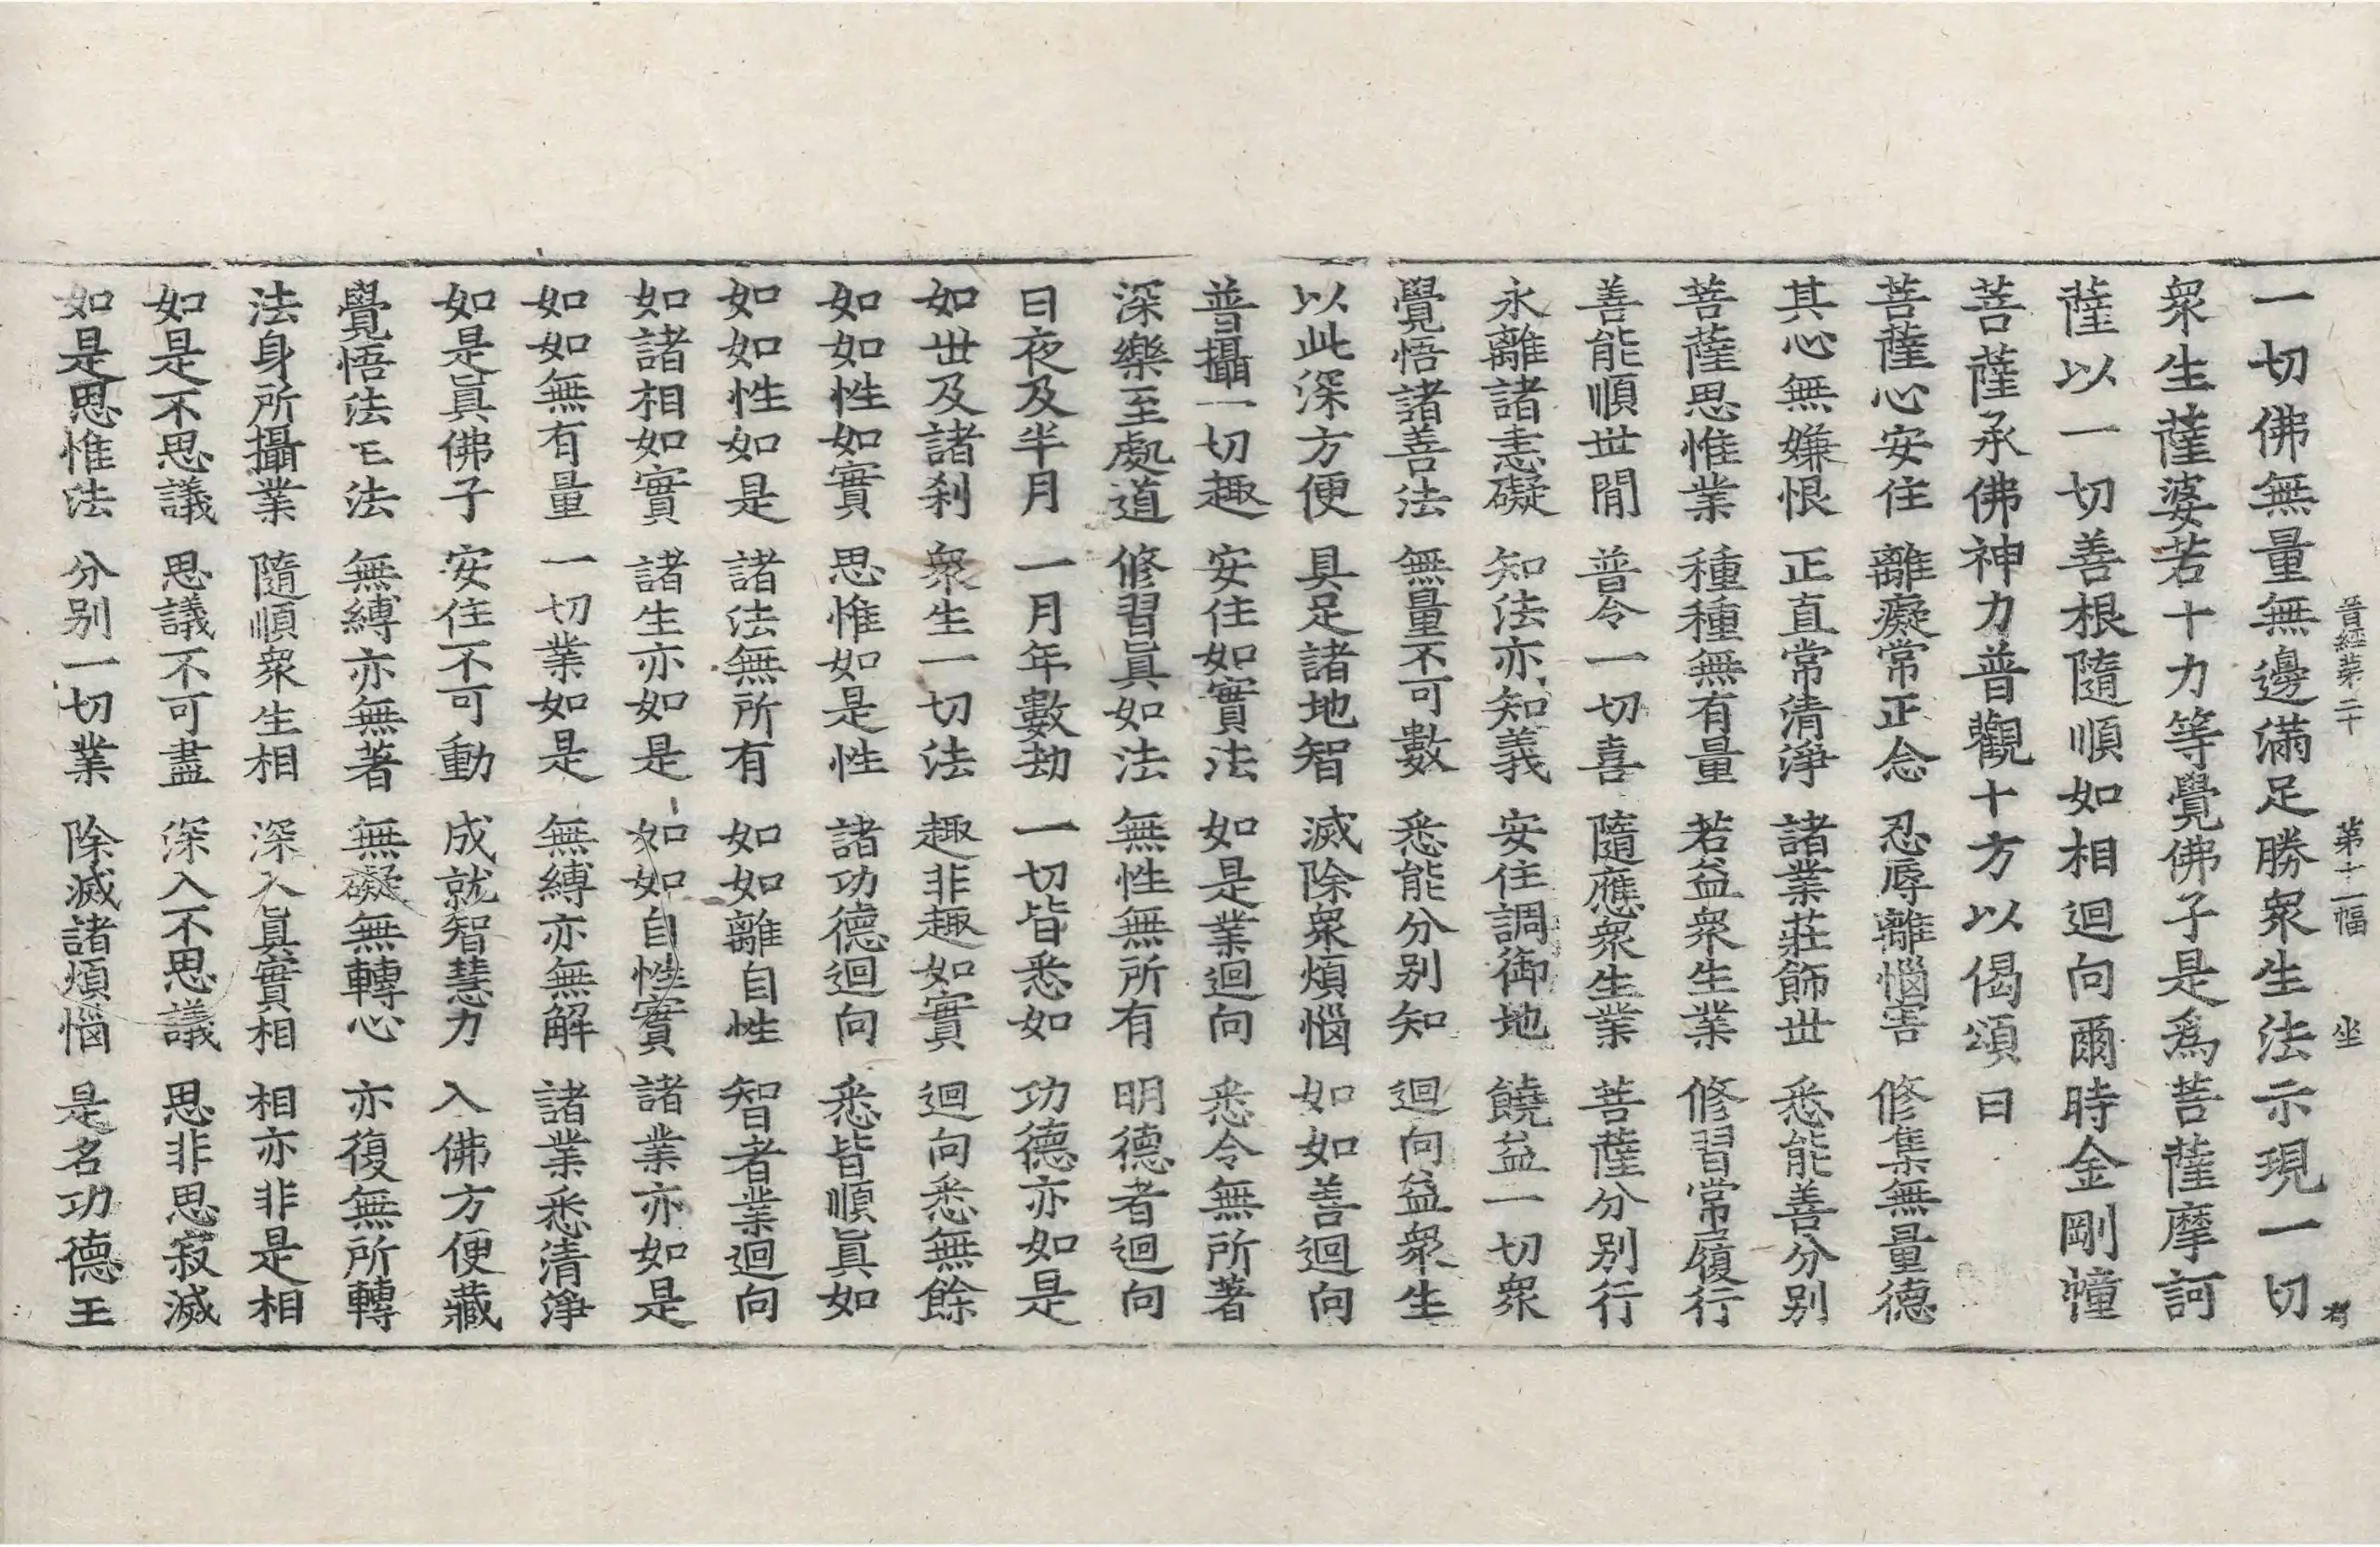 晋經第二十　第十二幅　坐
一切佛無量無邊滿足勝衆生法示現一切
衆生薩婆若十力等覺佛子是爲菩薩摩訶
薩以一切善根隨順如相迴向爾時金剛幢
菩薩承佛神力普觀十方以偈頌曰
菩薩心安住　離癡常正念　忍辱離惱害　修集無量德
其心無嫌恨　正直常清淨　諸業莊飾世　悉能善分别
菩薩思惟業　種種無有量　若益衆生業　修習常履行
善能順世間　普令一切喜　隨應衆生業　菩薩分别行
永離諸恚礙　知法亦知義　安住調御地　饒益一切衆
覺悟諸善法　無量不可數　悉能分别知　迴向益衆生
以此深方便　具足諸地智　滅除衆煩惱　如如善迴向
普攝一切趣　安住如實法　如是業迴向　悉令無所著
深樂至處道　修習眞如法　無性無所有　明德者迴向
日夜及半月　一月年數劫　一切皆悉如　功德亦如是
如世及諸刹　衆生一切法　趣非趣如實　迴向悉無餘
如如性如實　思惟如是性　諸功德迴向　悉皆順眞如
如如性如是　諸法無所有　如如離自性　智者業迴向
如諸相如實　諸生亦如是　如如自性實　諸業亦如是
如如無有量　一切業如是　無縛亦無解　諸業悉清淨
如是眞佛子　安住不可動　成就智慧力　入佛方便藏
覺悟法王法　無縛亦無著　無礙無轉心　亦復無所轉
法身所攝業　隨順衆生相　深入眞實相　相亦非是相
如是不思議　思議不可盡　深入不思議　思非思寂滅
如是思惟法　分别一切業　除滅諸煩惱　是名功德王